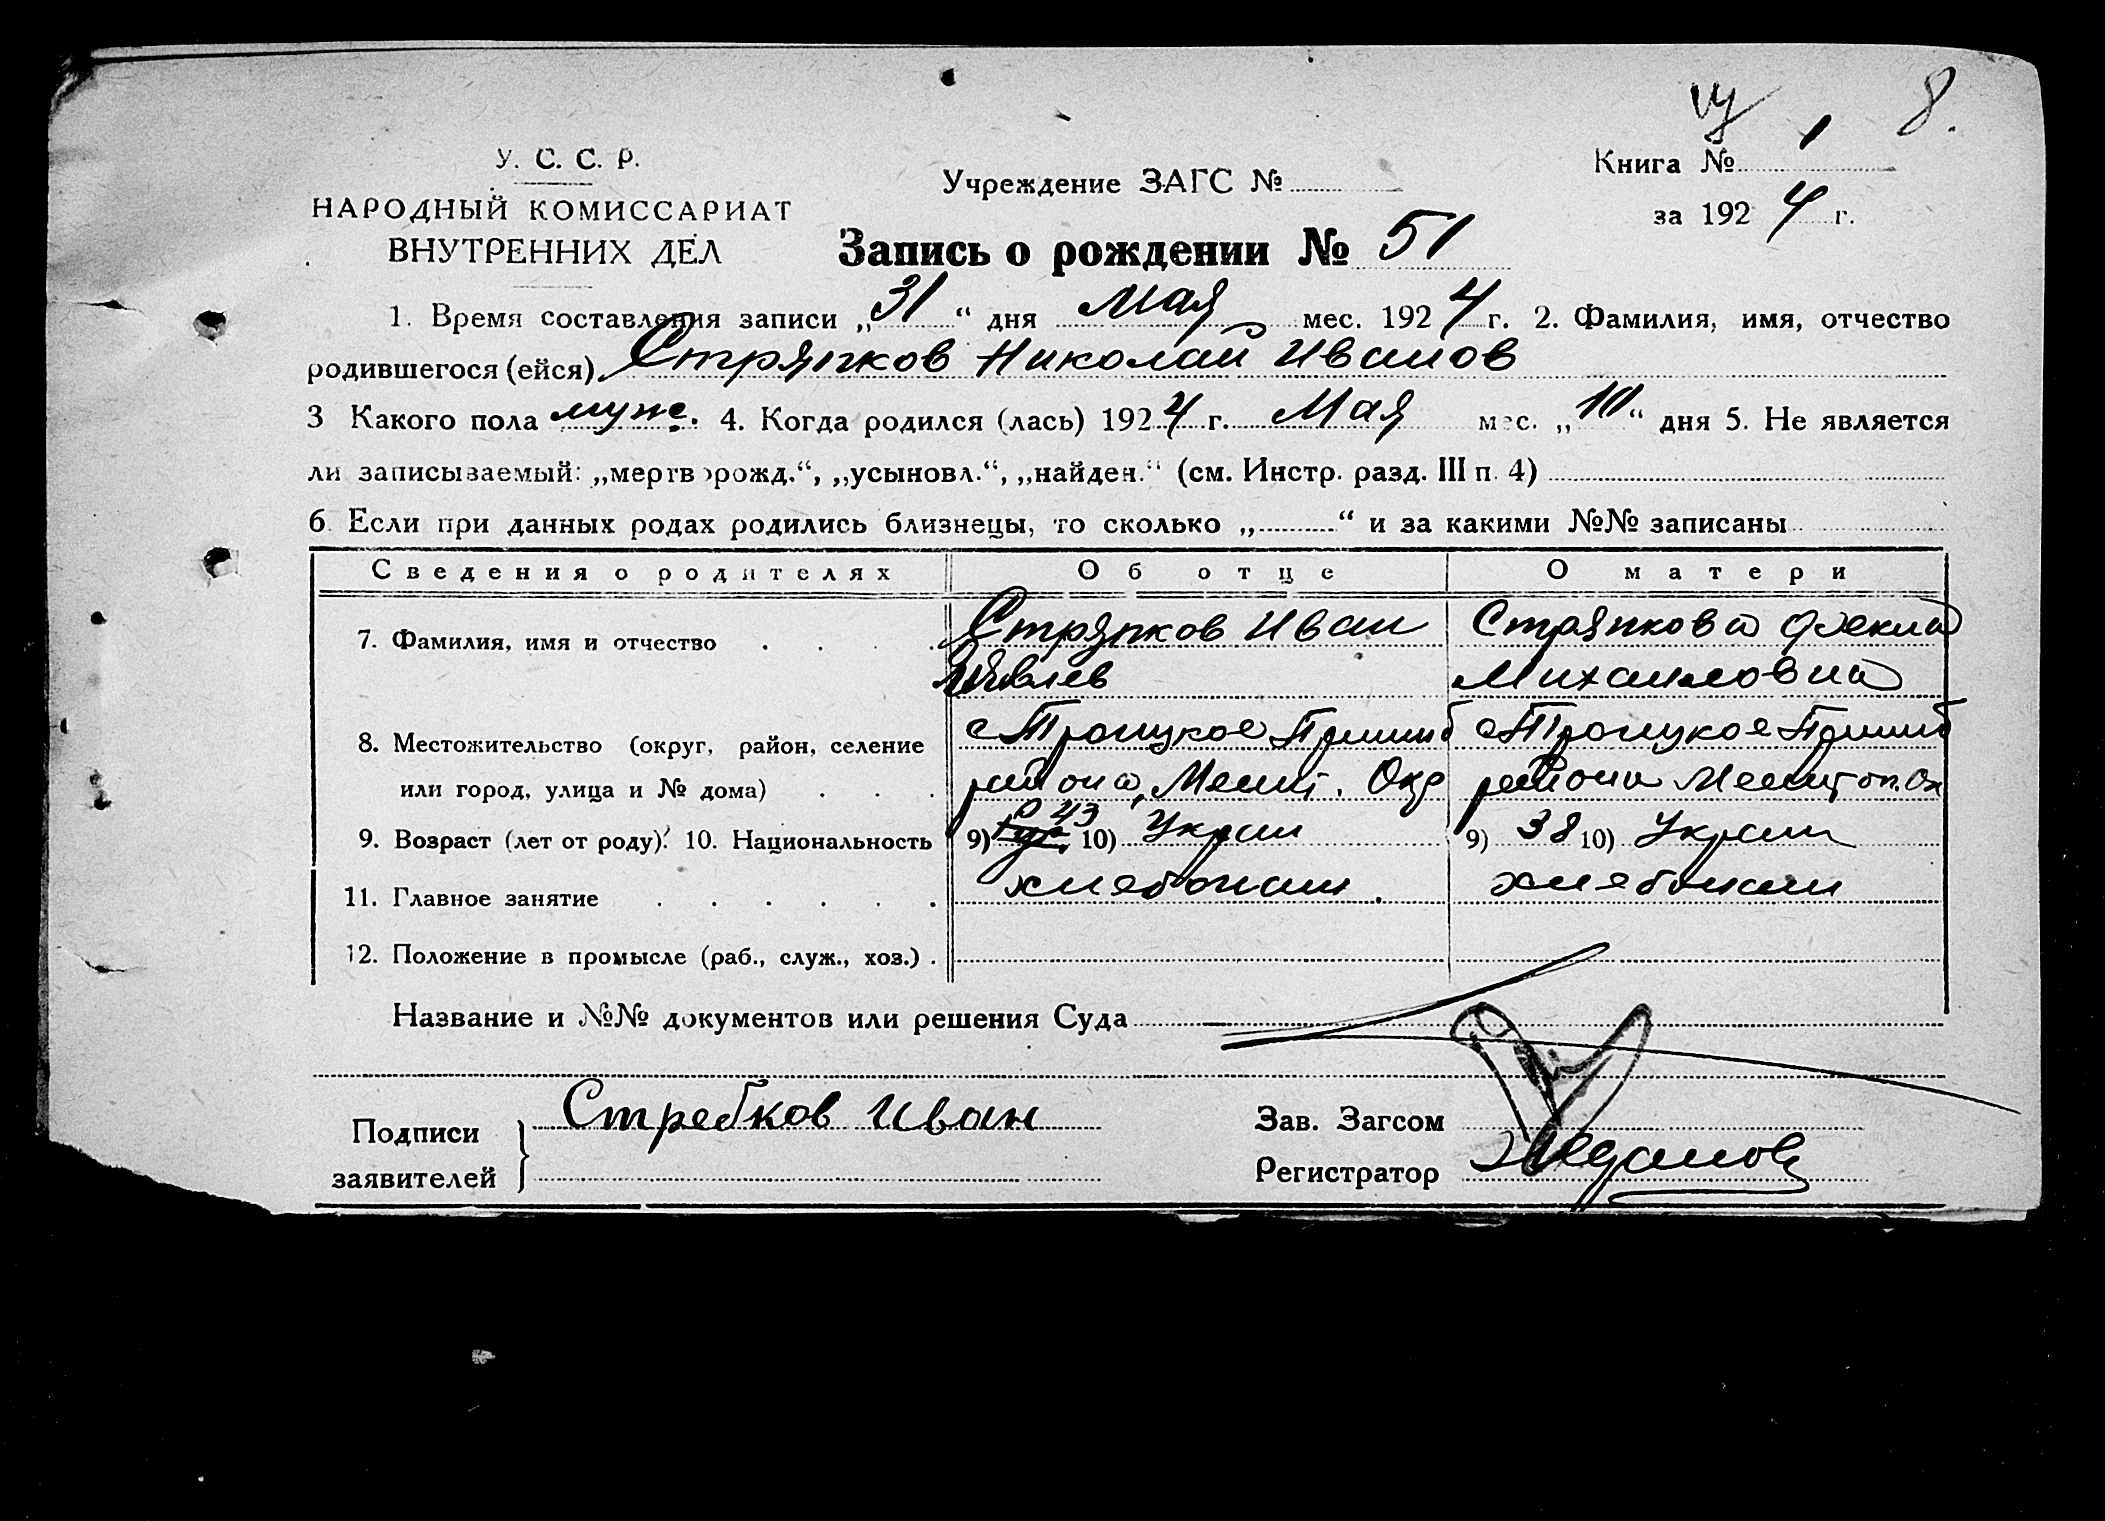 8.
У. С. С. Р.
НАРОДНЫЙ КОМИССАРИАТ
ВНУТРЕННИХ ДЕЛ
Учреждение ЗАГС №
Книга № 1
за 1924 г.
Запись о рождении № 51
1. Время составления записи „31“ дня Мая мес. 1924 г. 2. Фамилия, имя, отчество
родившегося (ейся) Стряпков Николай Иванов
3 Какого пола муже. 4. Когда родился (лась) 1924 г. Мая мес. „10“ дня 5. Не является
ли записываемый: „мертворожд.“, „усыновл.“, „найден.“ (см. Инстр. разд. III п. 4)
6. Если при данных родах родились близнецы, то сколько „ “ и за какими №№ записаны
Сведения о родителях Об отце О матери
7. Фамилия, имя и отчество Стряпков Иван Стряпкова Фекла
Михайловна
8. Местожительство (округ, район, селение с Троицкое Пришиб с Троицкое Пришиб
или город, улица и № дома) района, Мелит. Окр района Мелитоп. Ок
9. Возраст (лет от роду). 10. Национальность 9) 43 10) Украин 9) 38 10) Украин
11. Главное занятие хлебопаш. хлебопаш
12. Положение в промысле (раб., служ., хоз.)
Название и №№ документов или решения Суда
Подписи заявителей } Стребков Иван
Зав. Загсом
Регистратор